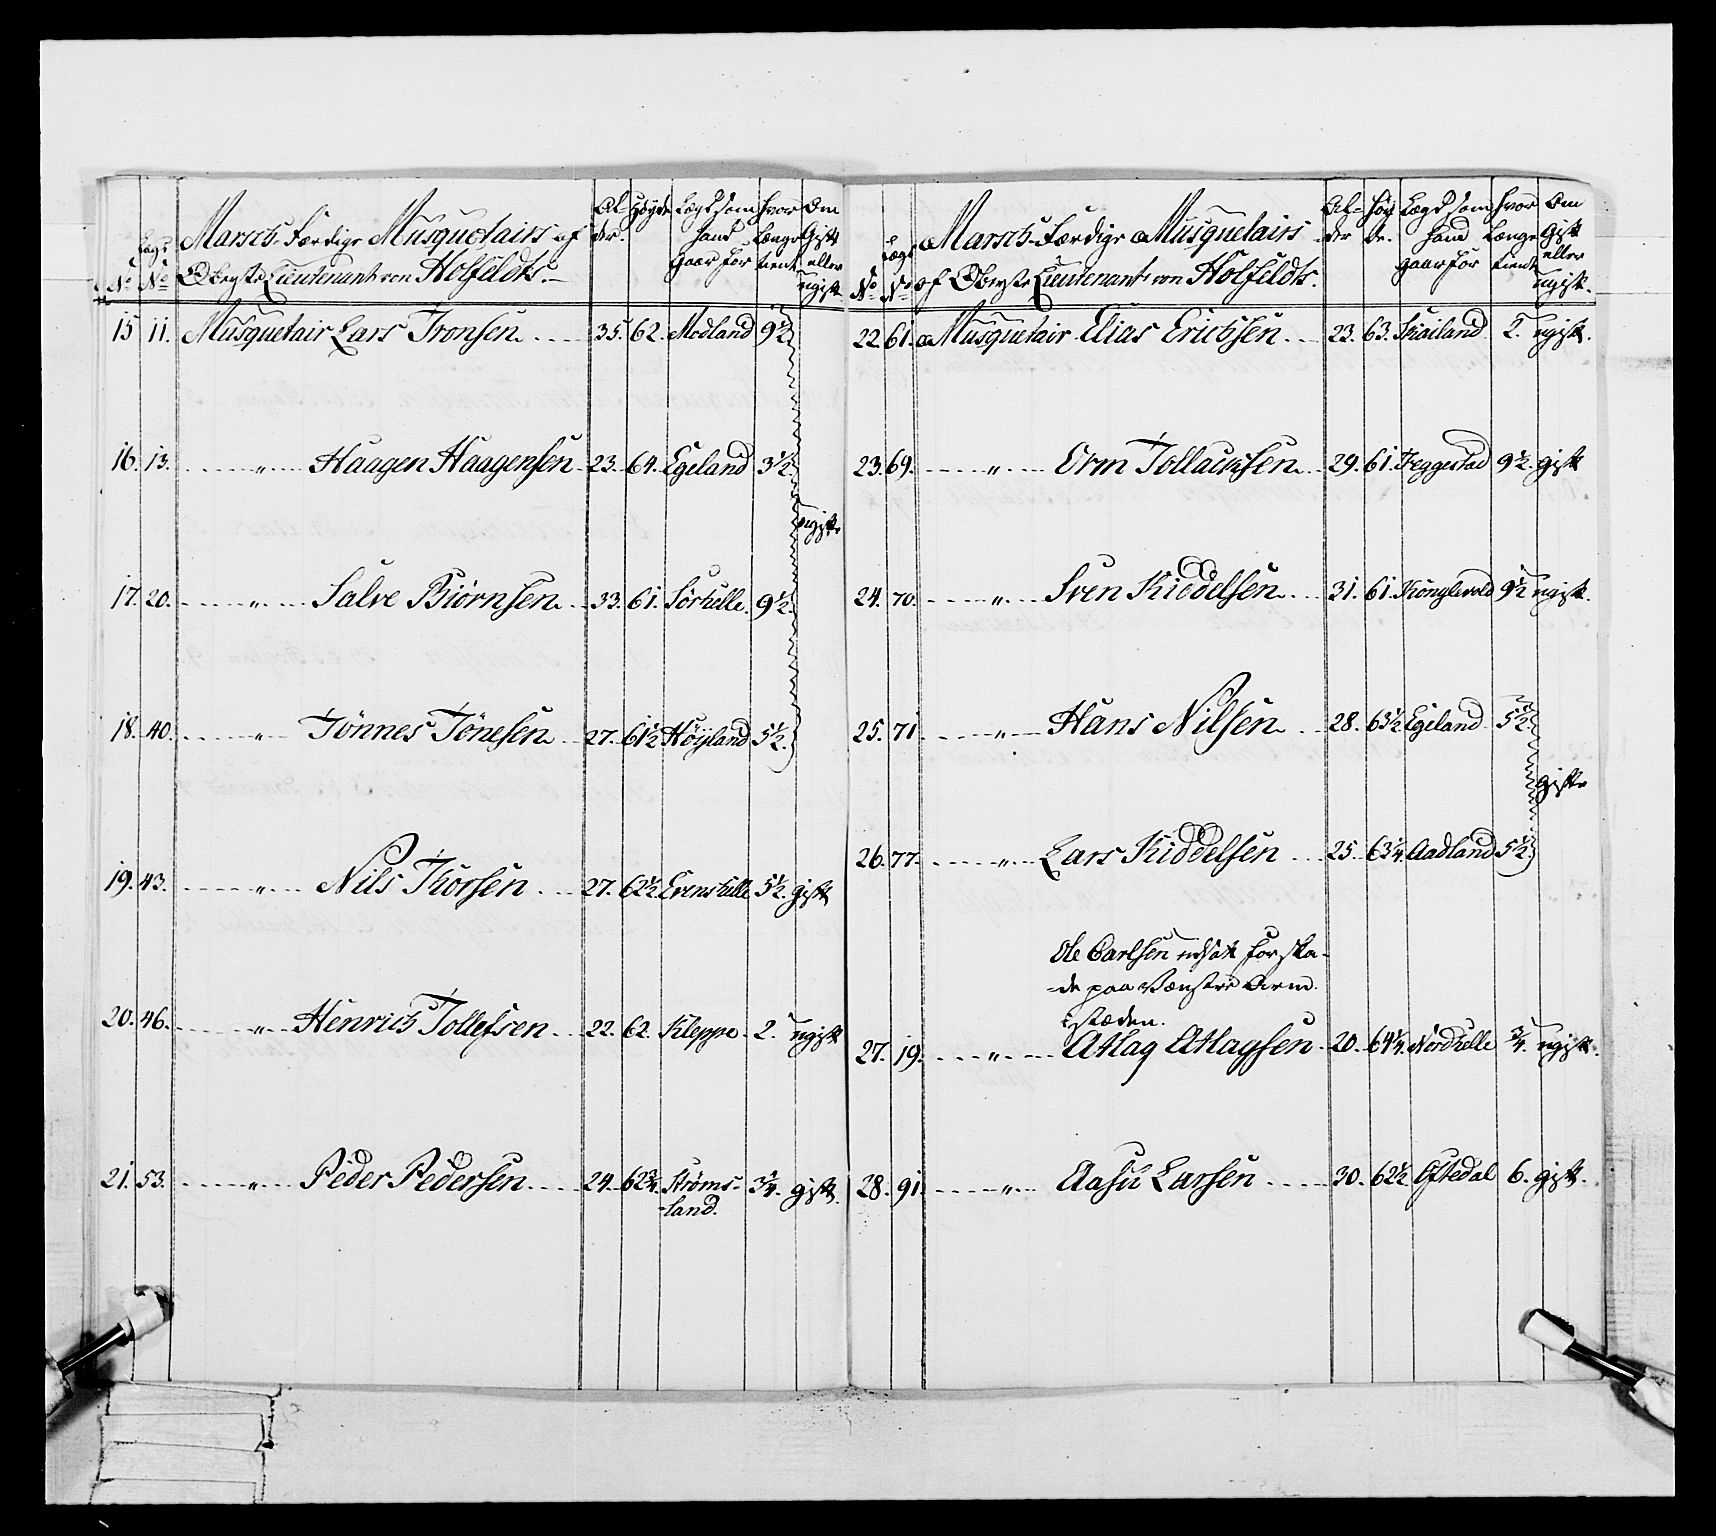 No
Lægs No
Marsch-Færdige Musquetairs af
Oberste Lieutenant von Holfeldts.
Al-
der.
Høyde
Lægd som
hand
gaar for
hvor
længe
tient
Om
Gift
eller
ugift
15 11. Musquetair Lars Tronsen 35. 62. Modland 9½
16. 13. " Haagen Haagensen 23. 64. Egeland 3½
ugifte
17. 20. " Salve Biörnsen 33. 61. Sörhelle 9½
18. 40. " Tönnes Tönesen 27. 61½ Høyland 5½.
19. 43. " Nils Thorsen 27. 62½ Evenshelle 5½. gift
20. 46. " Henrich Tollefsen 22. 62. Kleppe 2. ugift
21. 53. " Peder Pedersen 24. 62¾ Ströms-
-land. 3¼. gift
No
Lægs No
Marsch-Færdige Musquetairs
af Oberste Lieutenant von Holfeldts.
Al-
der
Høy
de.
Lægd som
hand
gaar for
hvor
længe
tient
Om
Gift
eller
ugift.
22. 61. Musquetair Elias Erichsen 23. 63. Skailand 2. ugift.
23. 69. " Orm Tollacksen 29. 61. Feggestad 9½. gift
24. 70. " Sven Kieddelsen 31. 61. Konglevold 9½ ugift.
25. 71. " Hans Nilsen 28. 63½ Egeland 5½.
gifte
26. 77. " Lars Kiddelsen 25. 63¼. Aadland 5½.
Ole Carlsen udsat for ska-
-de paa Venstre Arm.
istæden.
27. 19. " Atlag Atlagsen 20. 64¼. Nordhelle ¾. ugift.
28. 91. " Aasu Larsen 30. 62½ Oftedal 6. gift.